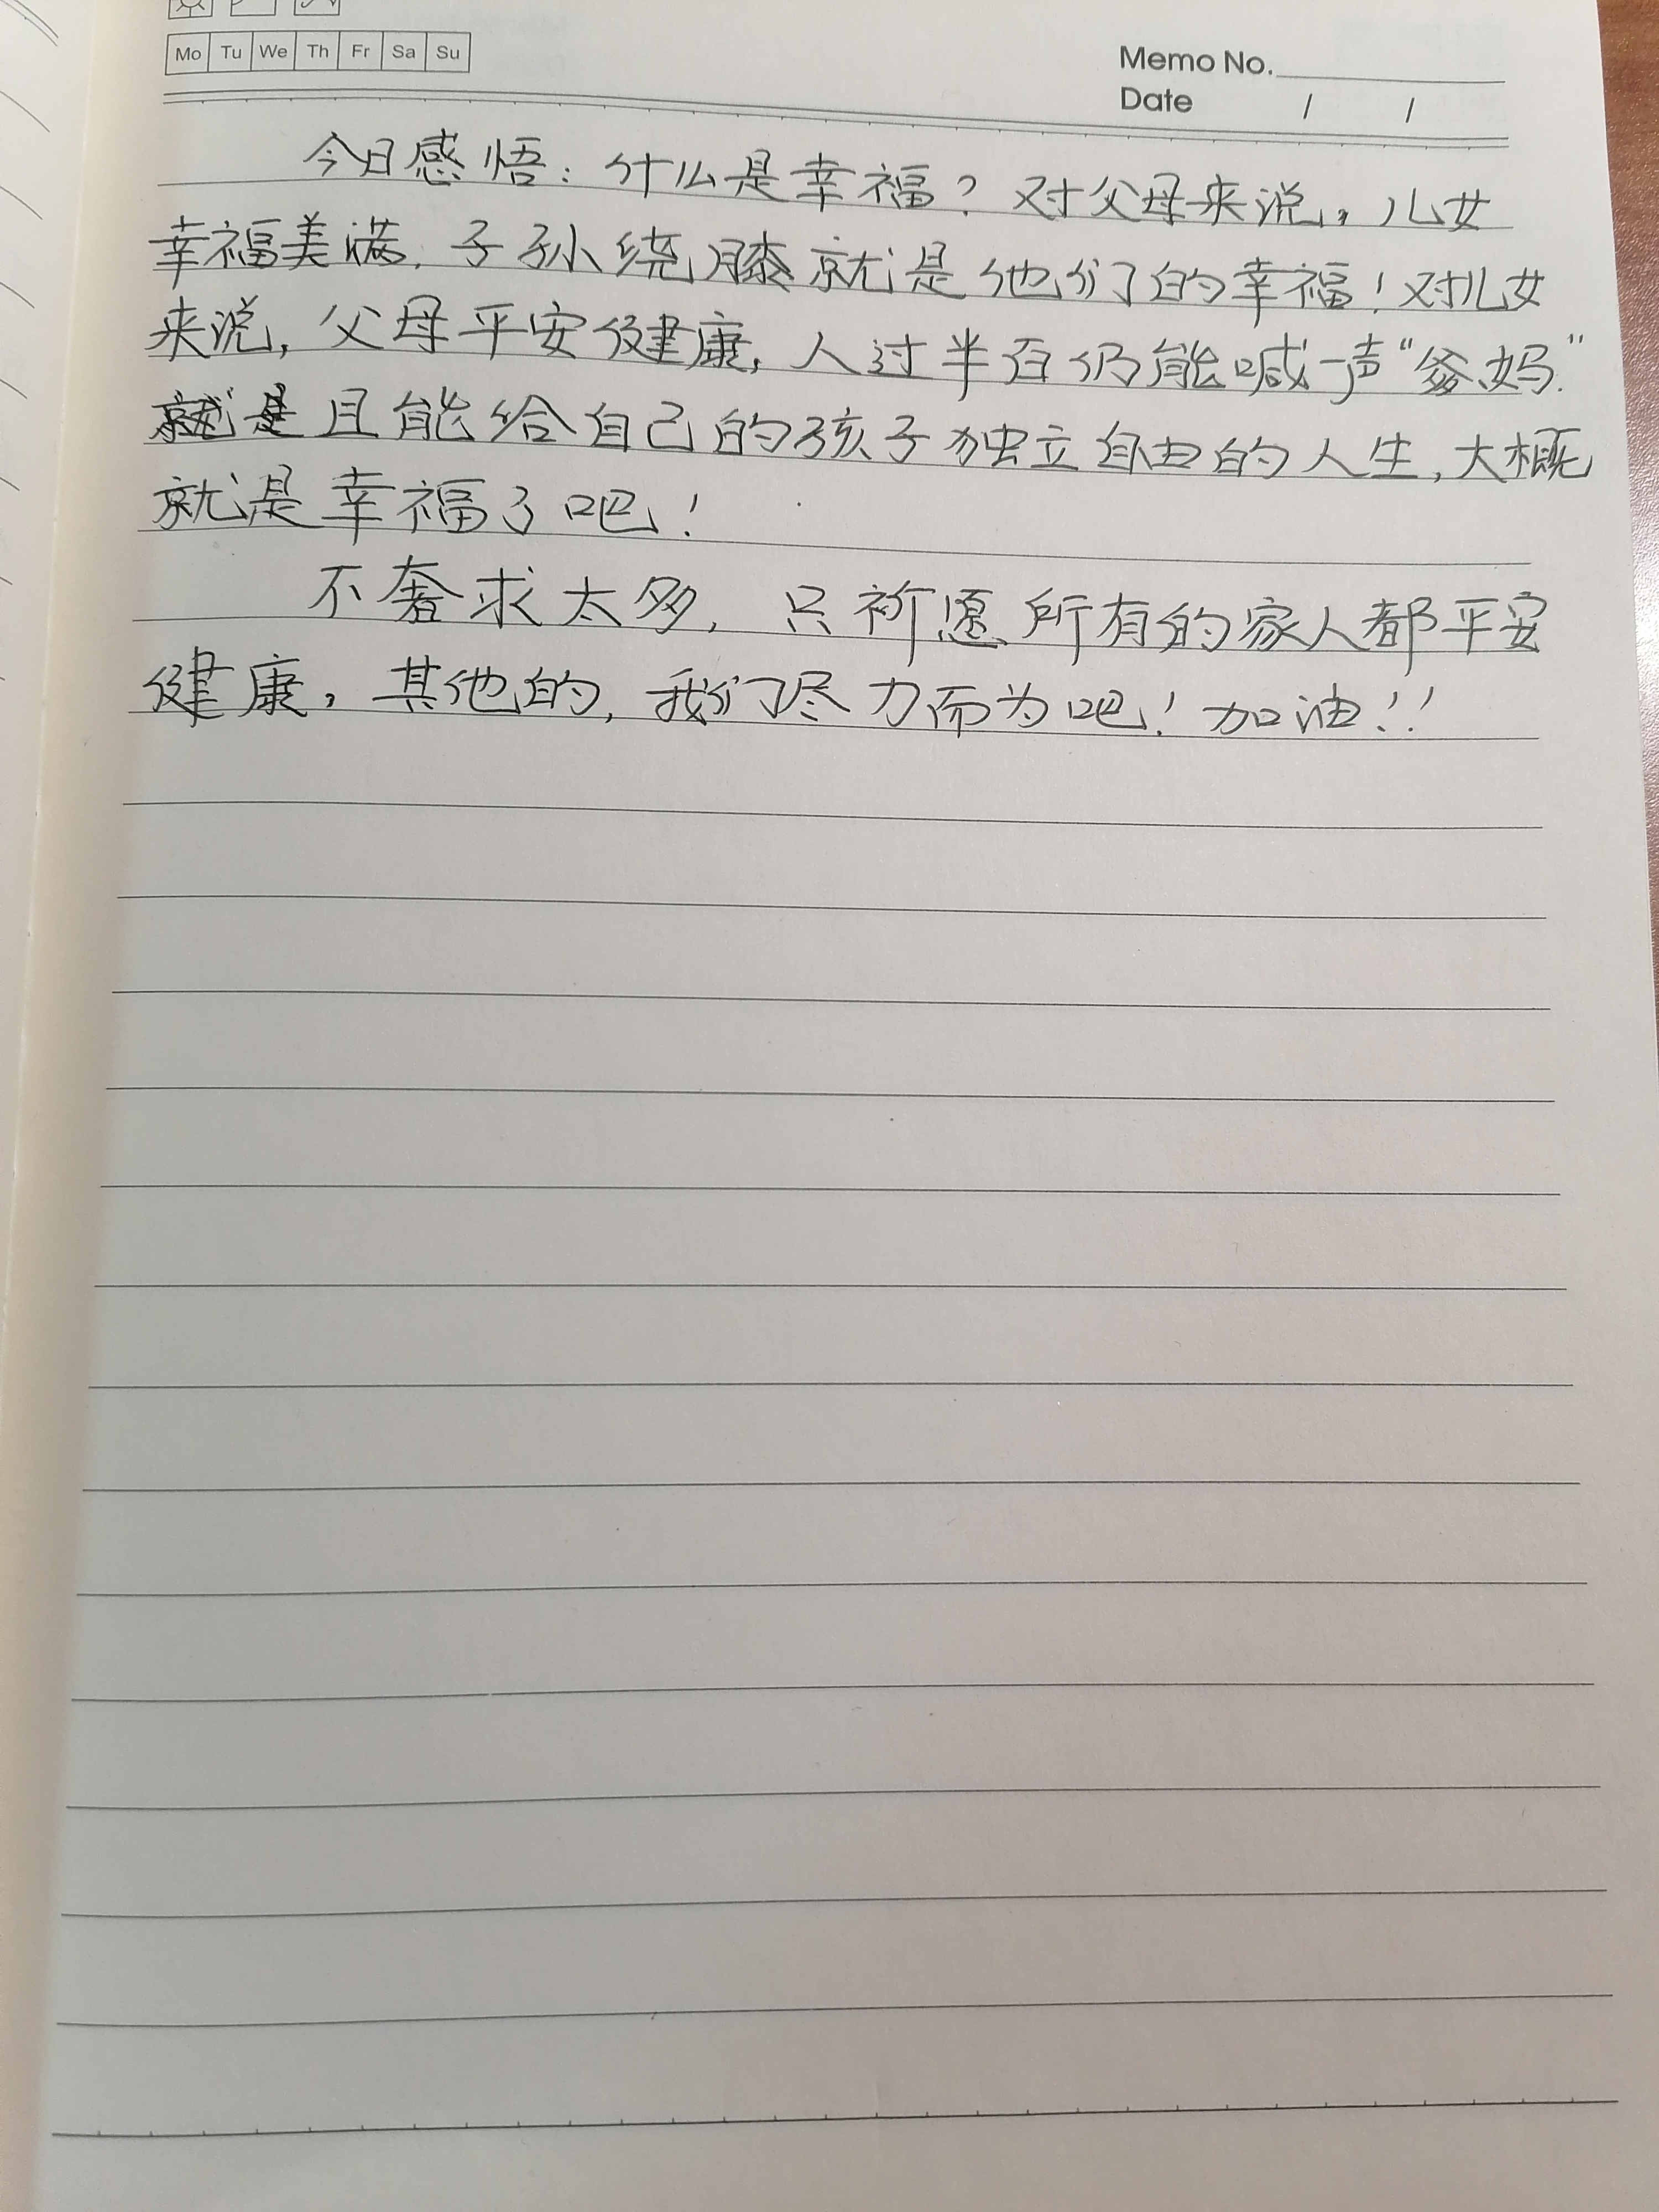 Mo Tu We Th Fr Sa Su
Memo No.
Date / /
今日感悟：什么是幸福？对父母来说，儿女
幸福美满，子孙绕膝就是他们的幸福！对儿女
来说，父母平安健康，人过半百仍能喊一声“爹妈”
且能给自己的孩子独立自由的人生，大概
就是幸福了吧！
不奢求太多，只祈愿所有的家人都平安
健康，其他的，我们尽力而为吧！加油！！